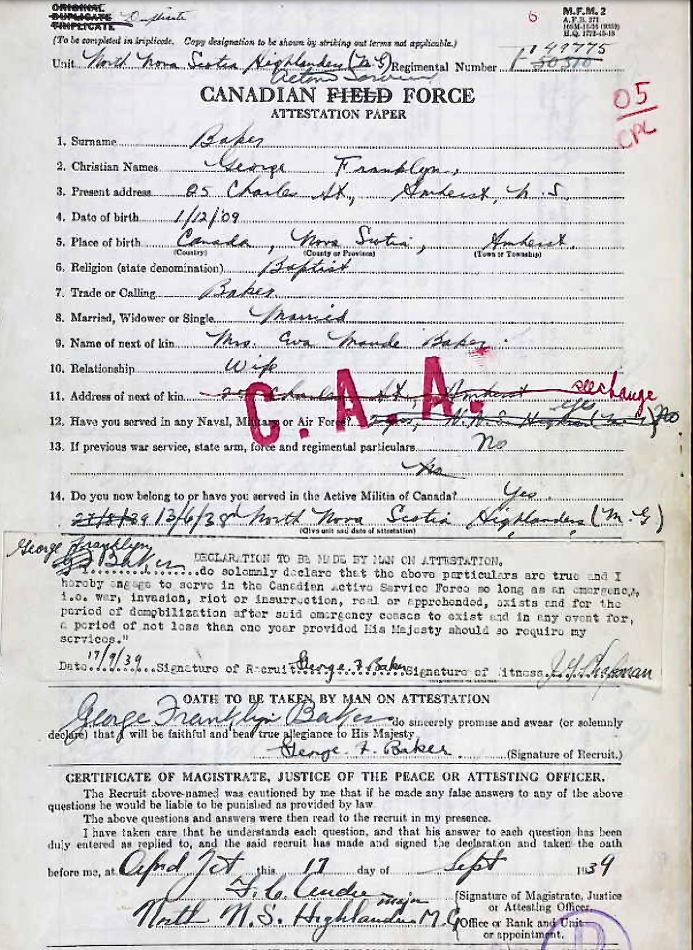 ORIGINAL
DUPLICATE Duplicate
TRIPLICATE
6
M.F.M. 2
(To be completed in triplicate. Copy designation to be shown by striking out terms not applicable.)
Unit North Nova Scotia Highlanders (M G) Regimental Number
Active Service
CANADIAN FIELD FORCE
ATTESTATION PAPER
05
CPC
1. Surname Baker
2. Christian Names George Franklyn.
3. Present address 25 Charles St., Amherst, N. S.
4. Date of birth 1/12/09
5. Place of birth Canada, Nova Scotia, Amherst.
(Country) (County or Province) (Town or Township)
6. Religion (state denomination) Baptist
7. Trade or Calling Baker
8. Married, Widower or Single Married
9. Name of next of kin Mrs. Eva Maude Baker.
10. Relationship Wife
11. Address of next of kin 25 Charles St., Amherst see change
C. A. A.
12. Have you served in any Naval, Military or Air Force? Yes
13. If previous war service, state arm, force and regimental particulars No
No
14. Do you now belong to or have you served in the Active Militia of Canada? Yes.
13/6/38 North Nova Scotia Highlanders (M G)
(Give unit and date of attestation)
George Franklyn
Baker
DECLARATION TO BE MADE BY MAN ON ATTESTATION.
I, do solemnly declare that the above particulars are true and I
hereby engage to serve in the Canadian Active Service Force so long as an emergency,
i.e. war, invasion, riot or insurrection, real or apprehended, exists and for the
period of demobilization after said emergency ceases to exist and in any event for,
a period of not less than one year provided His Majesty should so require my
services."
Date 17/9/39 Signature of Recruit George. F. Baker Signature of Witness
OATH TO BE TAKEN BY MAN ON ATTESTATION
George Franklyn Baker do sincerely promise and swear (or solemnly
declare) that I will be faithful and bear true allegiance to His Majesty
George. F. Baker (Signature of Recruit.)
CERTIFICATE OF MAGISTRATE, JUSTICE OF THE PEACE OR ATTESTING OFFICER.
The Recruit above-named was cautioned by me that if he made any false answers to any of the above
questions he would be liable to be punished as provided by law
The above questions and answers were then read to the recruit in my presence.
I have taken care that he understands each question, and that his answer to each question has been
duly entered as replied to, and the said recruit has made and signed the declaration and taken the oath
before me, at this 17 day of Sept 1939
Major (Signature of Magistrate, Justice
or Attesting Officer
North N.S. Highlanders M.G (Office or Rank and Unit
or appointment.